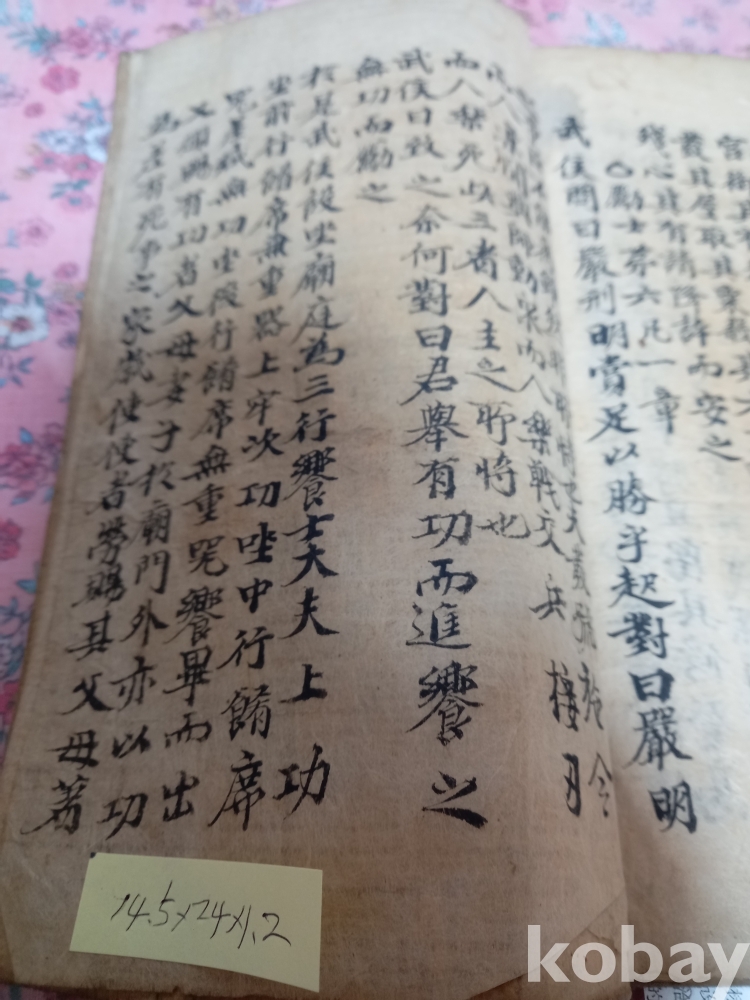 殘心其有請降許而安之
勵士第六凡一章
武侯問曰嚴刑明賞足以勝乎起對曰嚴明
人樂戰交兵接刃
而人樂死此三者人主之所恃也
武侯曰致之奈何對曰君舉有功而進饗之
無功而勵之
於是武侯設坐廟庭為三行饗士大夫上功
坐前行餚席無重器上牢次功坐中行餚席
器差減無功坐後行餚席無重器饗畢而出
又頒賜有功者父母妻子於廟門外亦以功
為差有死事之家歲使使者勞賜其父母著
14.5x24x1.2
kobay